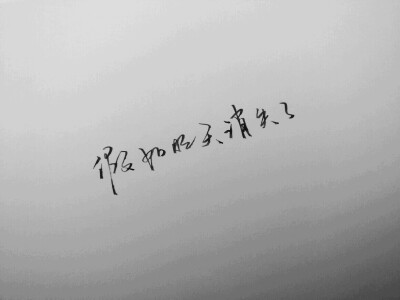 假如明天消失了